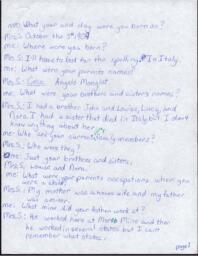 me: What year and day were you born on?
Mrs.S: October the 5th, 1907
me: Where were you born?
Mrs.S: I'll have to look for the spelling. In Italy.
me: What were your parents names?
Mrs.S: Angelo
me: What were your brothers and sisters names?
Mrs.S: I had a brother John and Louise, and
Nora. I had a sister that died in Italy but I don't
know anything about her.
me: Who are your current family members?
Mrs.S: Who were they?
me: Just your brothers and sisters.
Mrs.S: Louise and Nora.
me: What were your parents occupations when you
were a child?
Mrs.S: My mother was a house wife and my father
was a miner.
me: What mine did your father work at?
Mrs.S: He worked here at Mine and then
he worked in several states but I can't
remember what states.
page 1